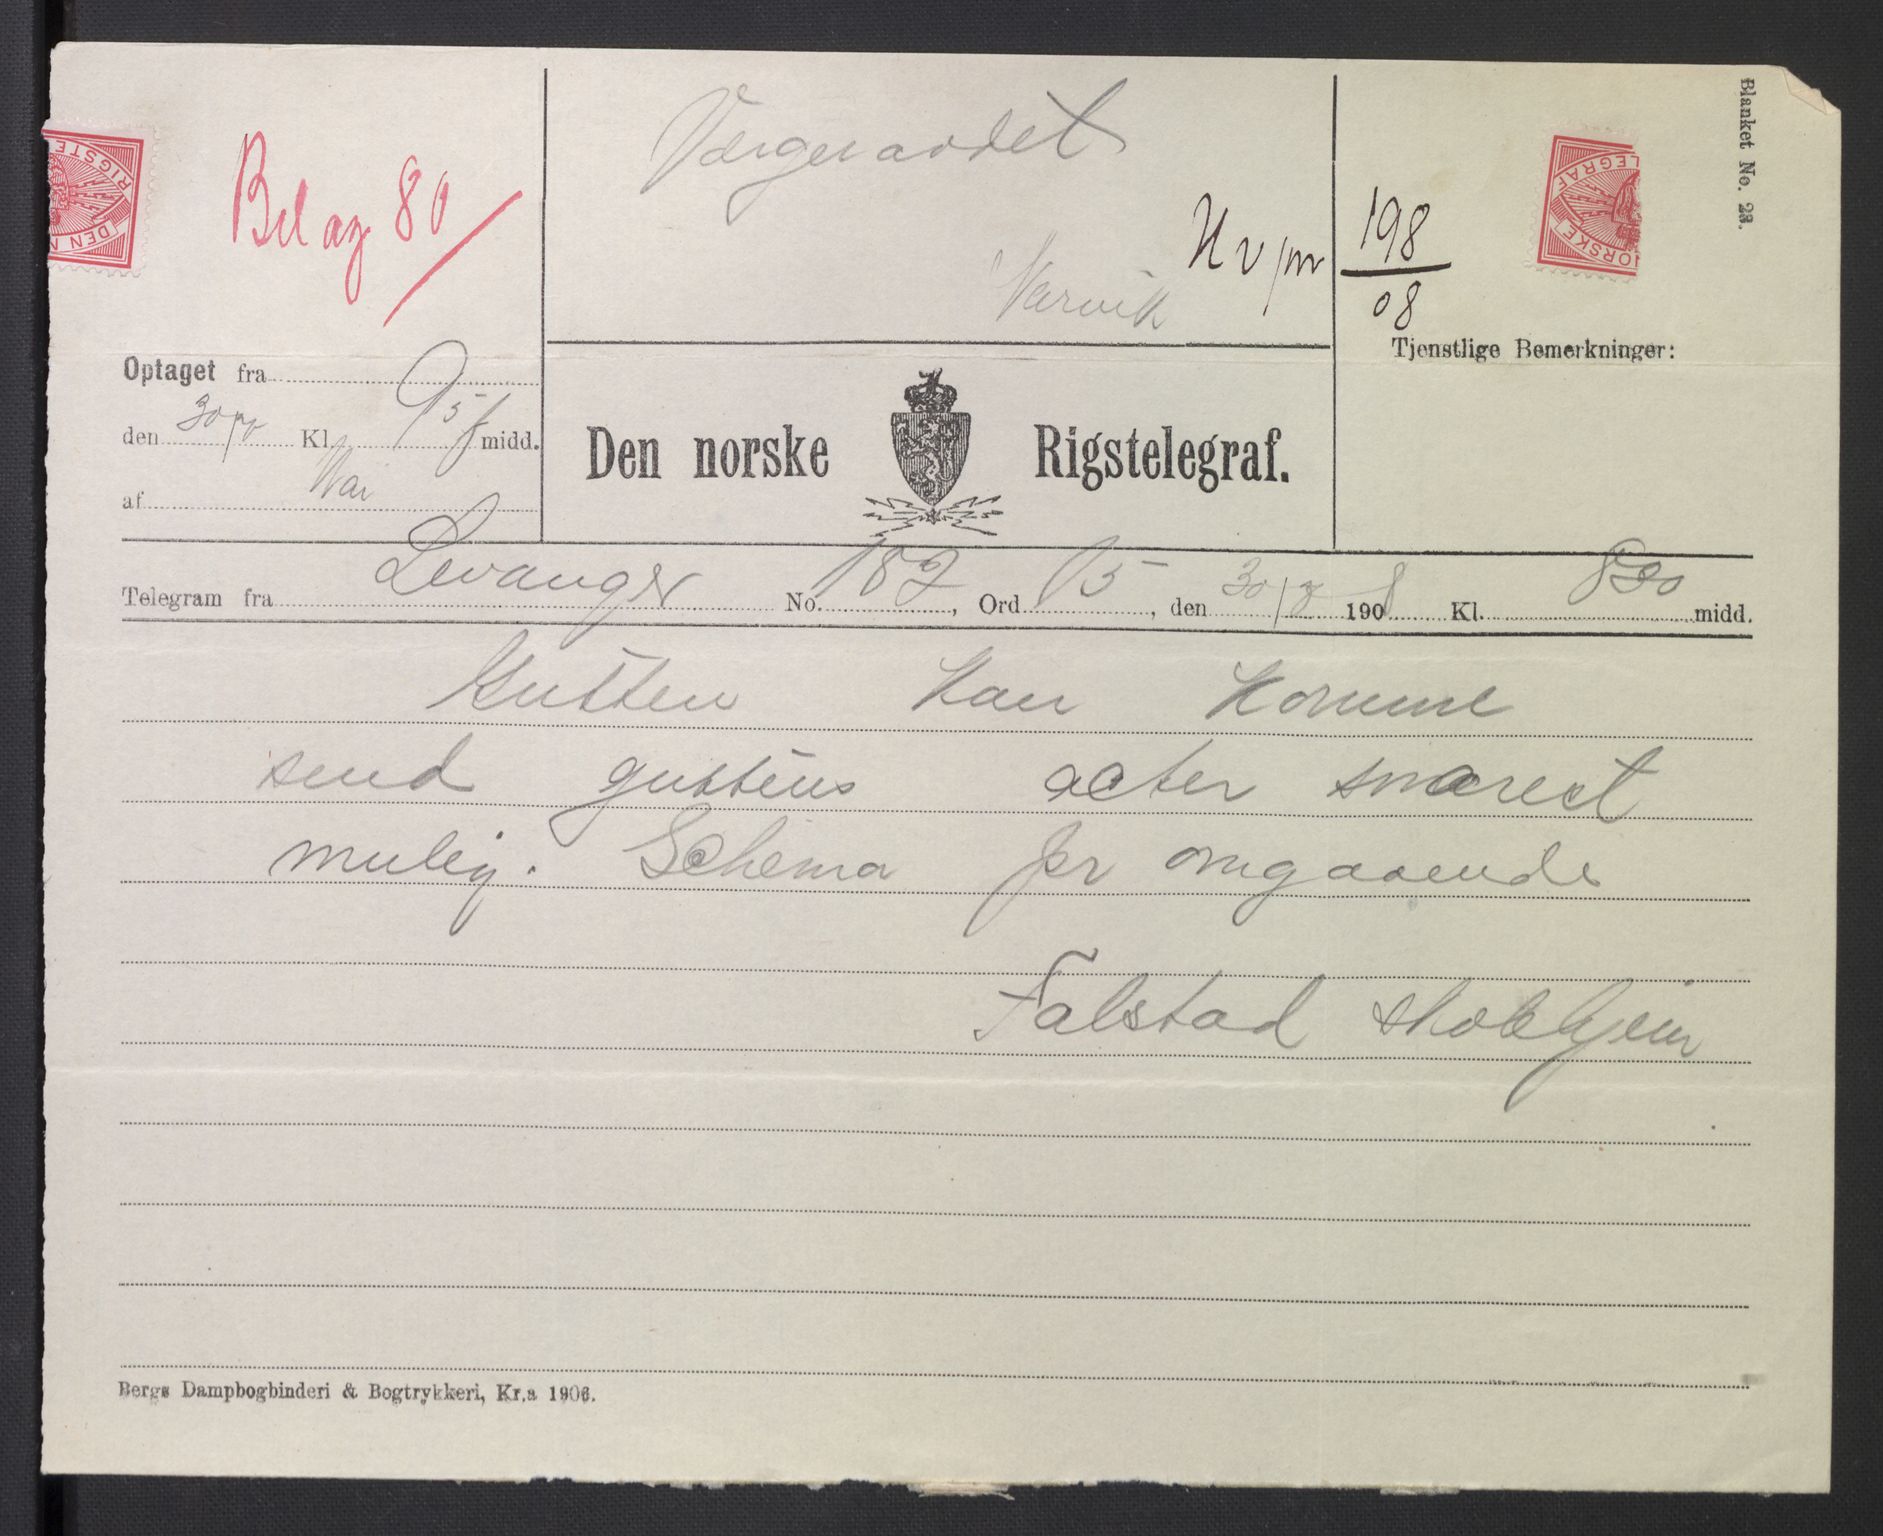 Blanket No. 23.
Bilag 80
Vergeraadet
Narvik
198
08
Tjenstlige Bemerkninger:
Optaget fra
den 30/ Kl. 9 5 f midd.
af
Den norske Rigstelegraf.
Telegram fra Levanger No. 182, Ord 15, den 30/7 1908 Kl. 830 midd.
Gutten kan komme
send guttens acter snarest
mulig. Schema pr omgaaende
Falstad skolehjem
Bergs Dampbogbinderi & Bogtrykkeri, Kr.a 1906.